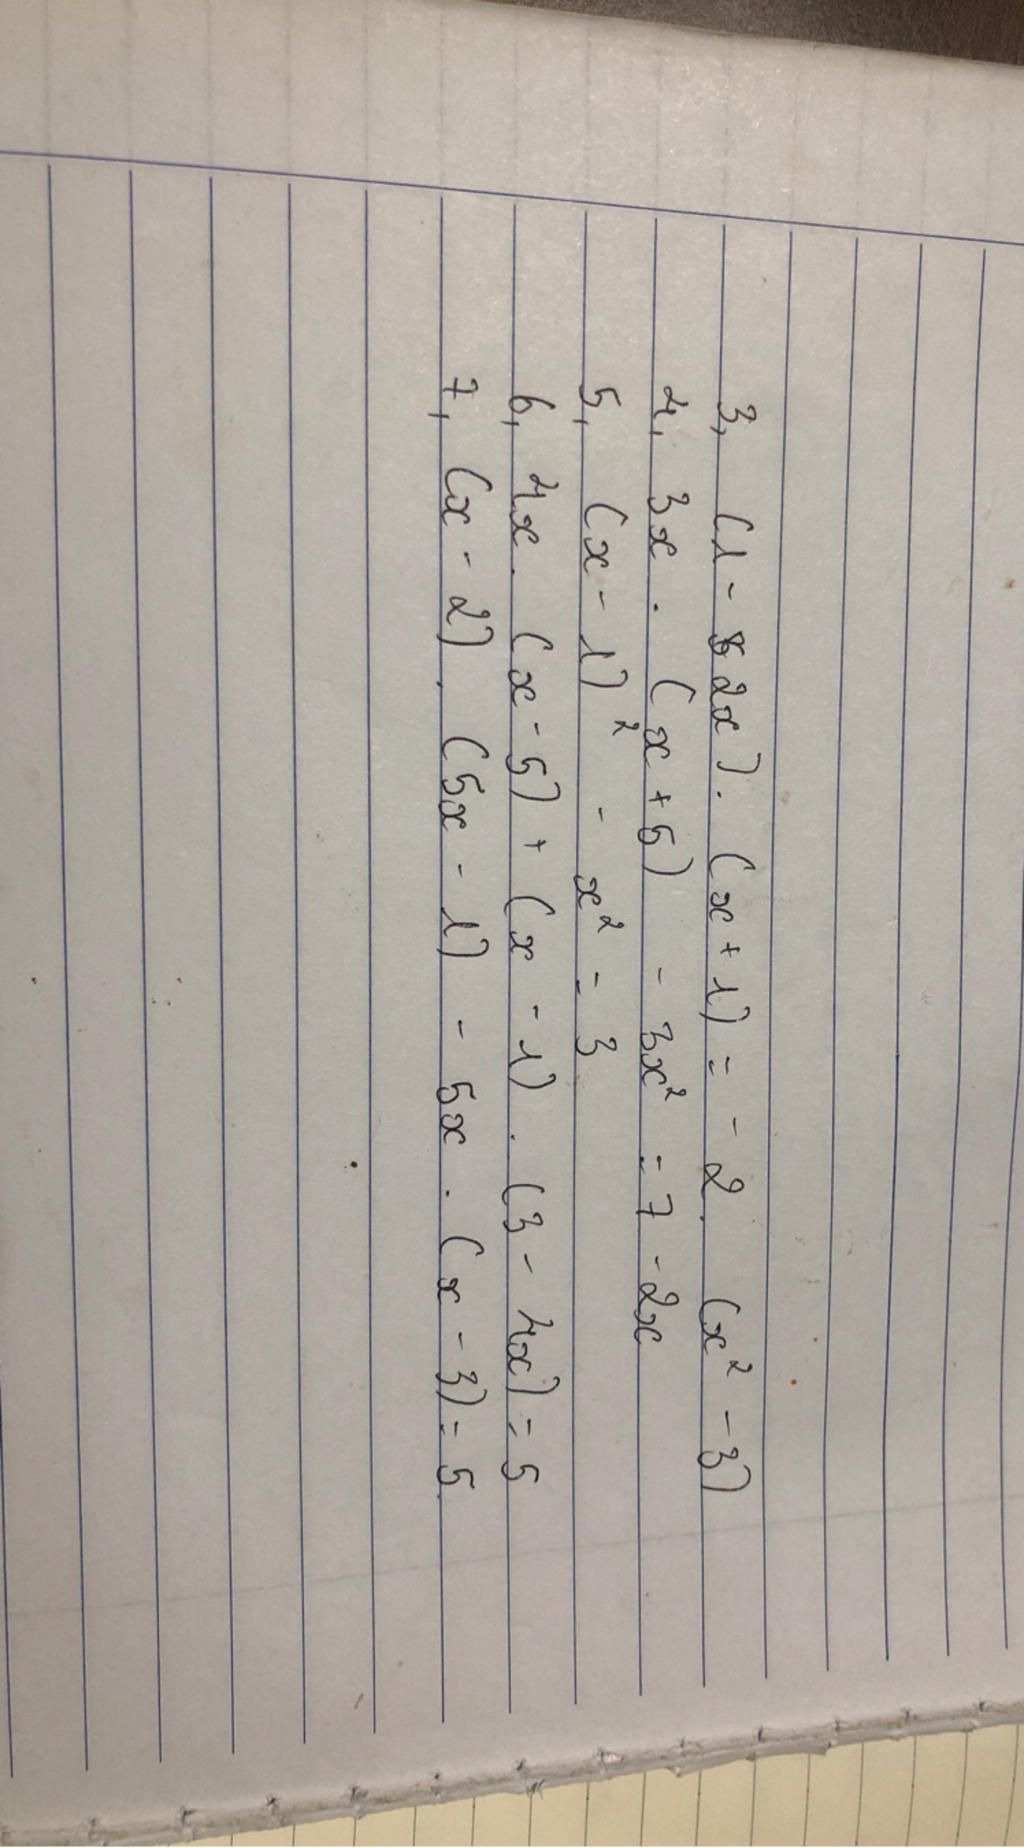 3, (1 - 2x). (x + 1) = - 2. (x² - 3)
4, 3x . (x + 5) - 3x² = 7 - 2x
5, (x - 1)² - x² = 3
6, 4x. (x - 5) + (x - 1) . (3 - 4x) = 5
7, (x - 2). (5x - 1) - 5x . (x - 3) = 5